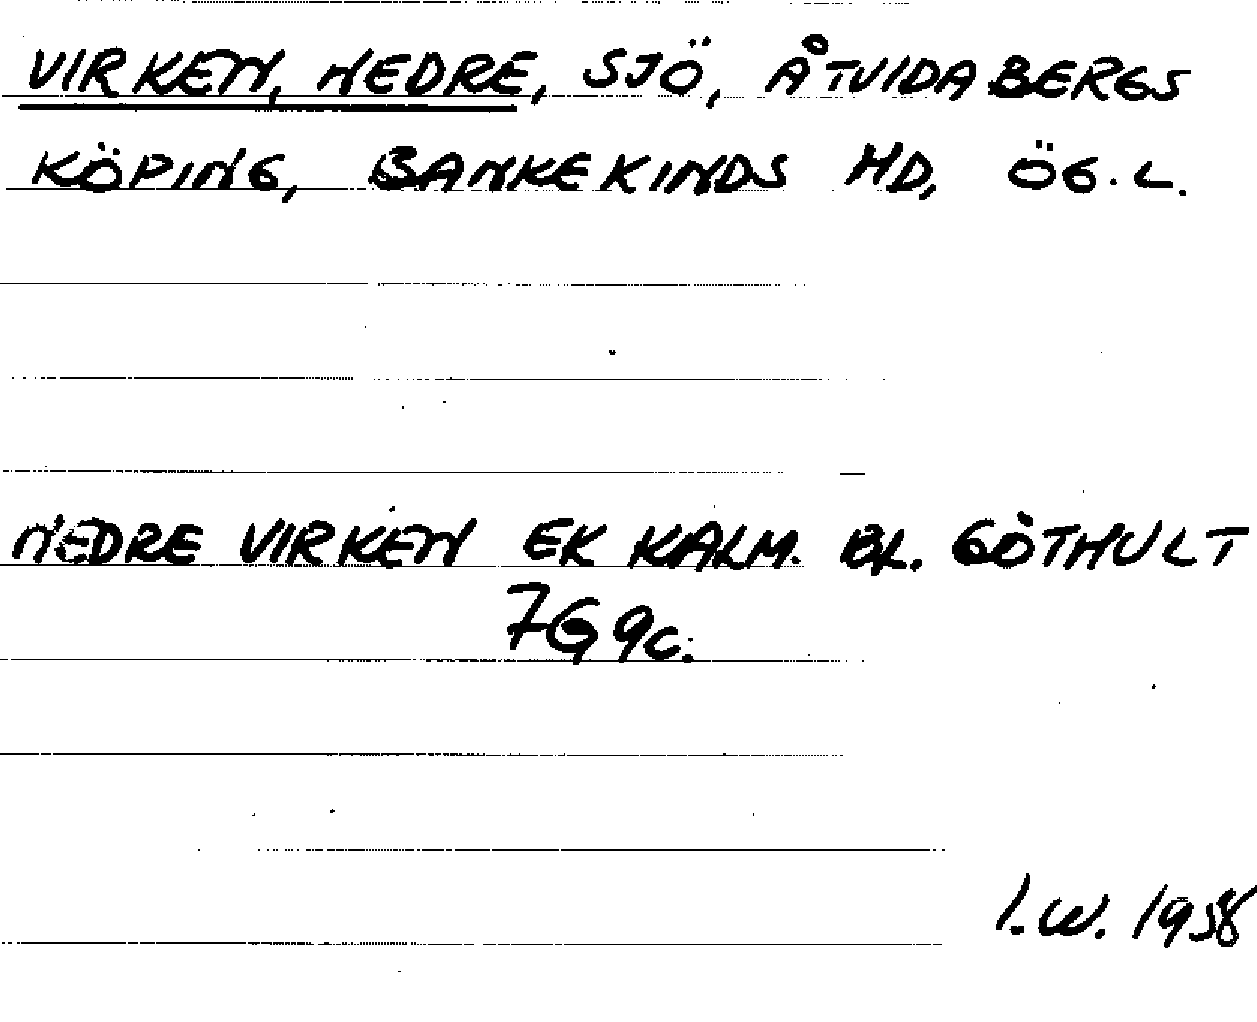 VIRKEN, NEDRE, SJÖ, ÅTVIDABERGS
KÖPING, BANKEKINDS HD, ÖG.L.
NEDRE VIRKEN EK KALM. BL. GÖTHULT
7G9c.
I.W. 1958